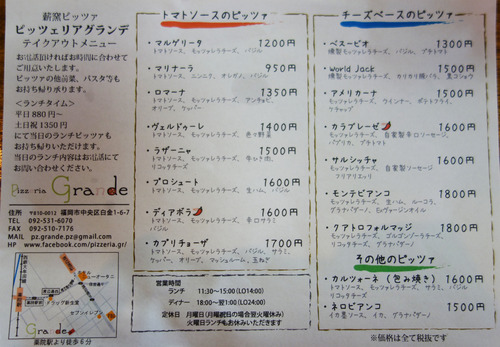 薪窯ピッツァ
ピッツェリアグランデ
テイクアウトメニュー
お電話頂ければお時間に合わせて
ご用意いたします。
ピッツァの他前菜、パスタ等も
お持ち帰り承ります。
<ランチタイム>
平日 880円~
土日祝 1350円
にて当日のランチピッツァも
お持ち帰りいただけます。
当日のランチ内容はお電話にて
お問い合わせください。
Pizzeria Grande
住所 〒810-0012 福岡市中央区白金1-6-7
TEL 092-531-6070
FAX 092-510-7176
MAIL pz.grande.pz@gmail.com
HP www.facebook.com/pizzeria.gr/
Grande
薬院駅より徒歩6分
トマトソースのピッツァ
・マルゲリータ 1200円
トマトソース、モッツァレラチーズ、バジル
・マリナーラ 950円
トマトソース、ニンニク、オレガノ、バジル
・ロマーナ 1350円
トマトソース、モッツァレラチーズ、アンチョビ
オリーブ、ケッパー
・ヴェルドゥーレ 1400円
トマトソース、モッツァレラチーズ、色々野菜
・ラザーニャ 1500円
トマトソース、モッツァレラチーズ、辛ひき肉、
リコッタチーズ
・プロシュート 1600円
トマトソース、モッツァレラチーズ、生ハム、バジル
・ディアボラ 1600円
トマトソース、モッツァレラチーズ、辛口サラミ
バジル
・カプリチョーザ 1700円
トマトソース、モッツァレラチーズ、バジル、サラミ、
ケッパー、オリーブ、マッシュルーム、玉ねぎ
営業時間
ランチ 11:30~15:00(LO14:00)
ディナー 18:00~翌1:00(LO24:00)
定休日 月曜日(月曜祝日の場合翌火曜休み)
火曜日ランチもお休みいただきます
チーズベースのピッツァ
・ベスービオ 1300円
燻製モッツァレラチーズ、バジル、プチトマト
・World Jack 1500円
燻製モッツァレラチーズ、カリカリ豚バラ、黒コショウ
・アメリカーナ 1500円
モッツァレラチーズ、ウインナー、ポテトフライ、
ケチャップ
・カラブレーゼ 1600円
モッツァレラチーズ、自家製辛口ソーセージ、
パプリカ、プチトマト
・サルシッチャ 1600円
モッツァレラチーズ、自家製ソーセージ
フリアリエリ
・モンテビアンコ 1800円
モッツァレラチーズ、生ハム、ルーコラ、
グラナパダーノ、EXヴァージンオイル
・クアトロフォルマッジ 1800円
モッツァレラチーズ、ゴルゴンゾーラチーズ、
リコッタチーズ、グラナパダーノ
その他のピッツァ
・カルツォーネ(包み焼き) 1600円
トマトソース、モッツァレラチーズ、サラミ、バジル
リコッタチーズ
・ネロビアンコ 1500円
イカ墨ソース、イカ、グラナパダーノ
※価格は全て税抜です